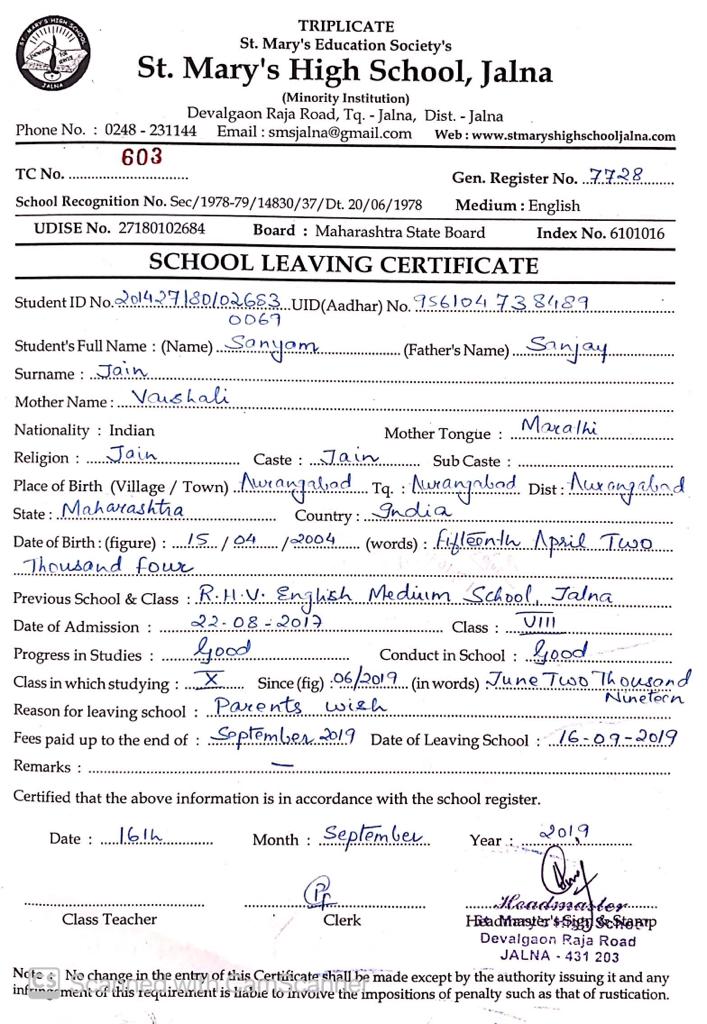 TRIPLICATE
St. Mary's Education Society's
St. Mary's High School, Jalna
(Minority Institution)
Devalgaon Raja Road, Tq. - Jalna, Dist. - Jalna
Phone No. : 0248 - 231144 Email : smsjalna@gmail.com Web : www.stmaryshighschooljalna.com
TC No. 603 Gen. Register No. 7728
School Recognition No. Sec/1978-79/14830/37/Dt. 20/06/1978 Medium : English
UDISE No. 27180102684 Board : Maharashtra State Board Index No. 6101016
SCHOOL LEAVING CERTIFICATE
Student ID No. 201427180102683 UID(Aadhar) No. 956104738489
0069
Student's Full Name : (Name) Sanyam (Father's Name) Sanjay
Surname : Jain
Mother Name : Vaishali
Nationality : Indian Mother Tongue : Marathi
Religion : Jain Caste : Jain Sub Caste :
Place of Birth (Village / Town) Aurangabad Tq. : Aurangabad Dist : Aurangabad
State : Maharashtra Country : India
Date of Birth : (figure) : 15 / 04 / 2004 (words) : Fifteenth April Two
Thousand four
Previous School & Class : R.H.V. English Medium School, Jalna
Date of Admission : 22-08-2017 Class : VIII
Progress in Studies : Good Conduct in School : Good
Class in which studying : X Since (fig) 06/2019 (in words) June Two Thousand
Nineteen
Reason for leaving school : Parents wish
Fees paid up to the end of : September 2019 Date of Leaving School : 16-09-2019
Remarks : —
Certified that the above information is in accordance with the school register.
Date : 16th Month : September Year : 2019
Class Teacher Clerk Headmaster
Headmaster's Sign & Stamp
Devalgaon Raja Road
JALNA - 431 203
Note : No change in the entry of this Certificate shall be made except by the authority issuing it and any
infringement of this requirement is liable to involve the impositions of penalty such as that of rustication.
CS Scanned with CamScanner